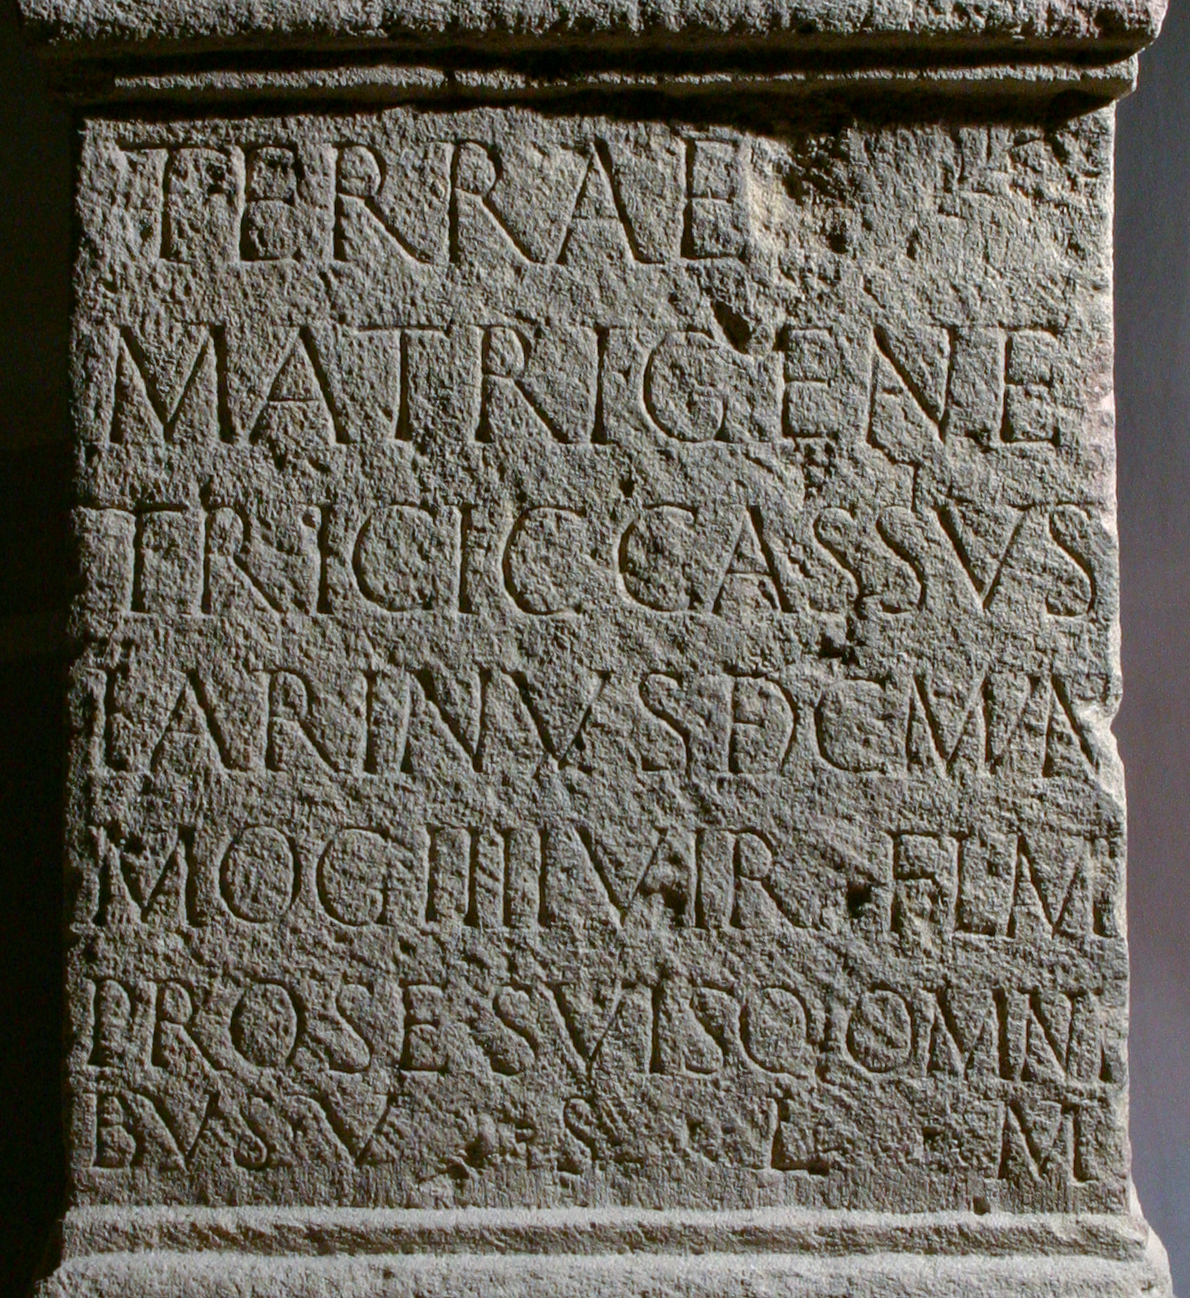 TERRAE
MATRI GENE
TRICI C CASSVS
IARINVS D C MA
MOG IIII VIR FLM
PRO SE SVISQ OMNI
BVS V S L M